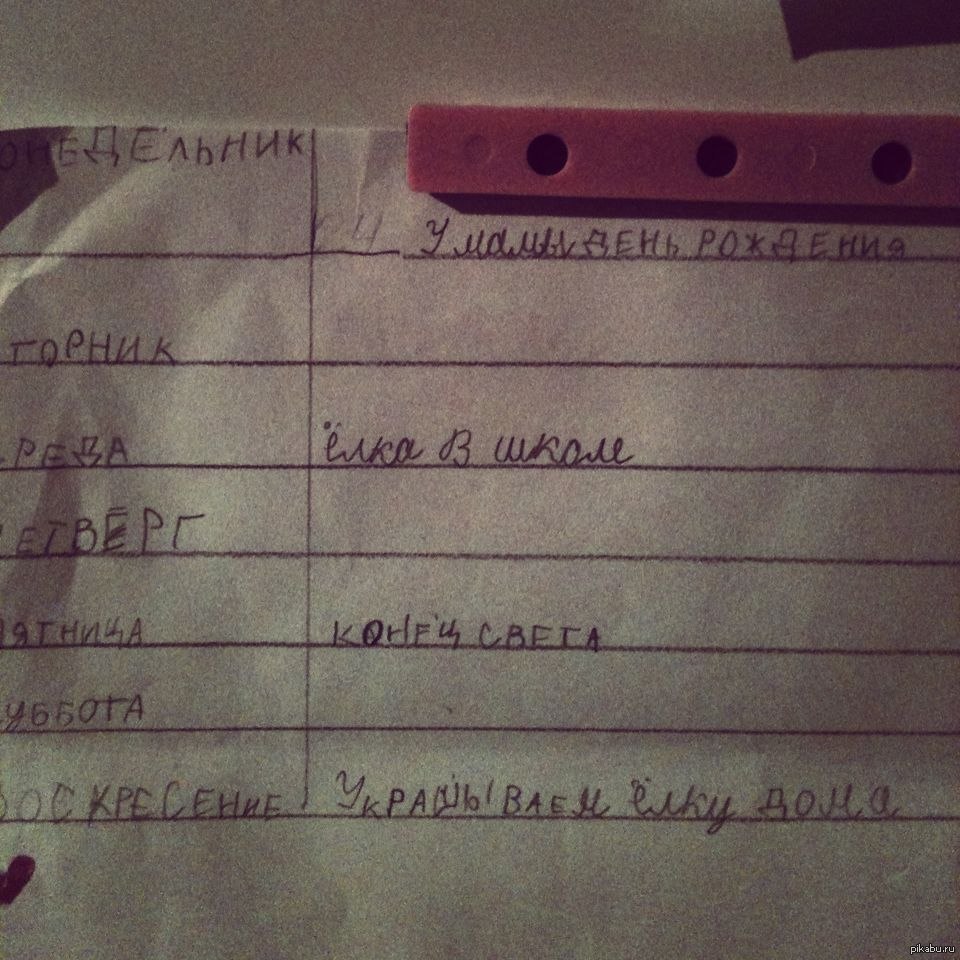 ОНЕДЕЛЬНИК
У мамы ДЕНЬ РОЖДЕНИЯ
ТОРНИК
РЕДА ёлка в школе
ЕТВЕРГ
ЯТНИЦА КОНЕЦ СВЕТА
УББОТА
ОСКРЕСЕНИЕ УКРАШЫВАЕМ ёлку ДОМА
pikabu.ru